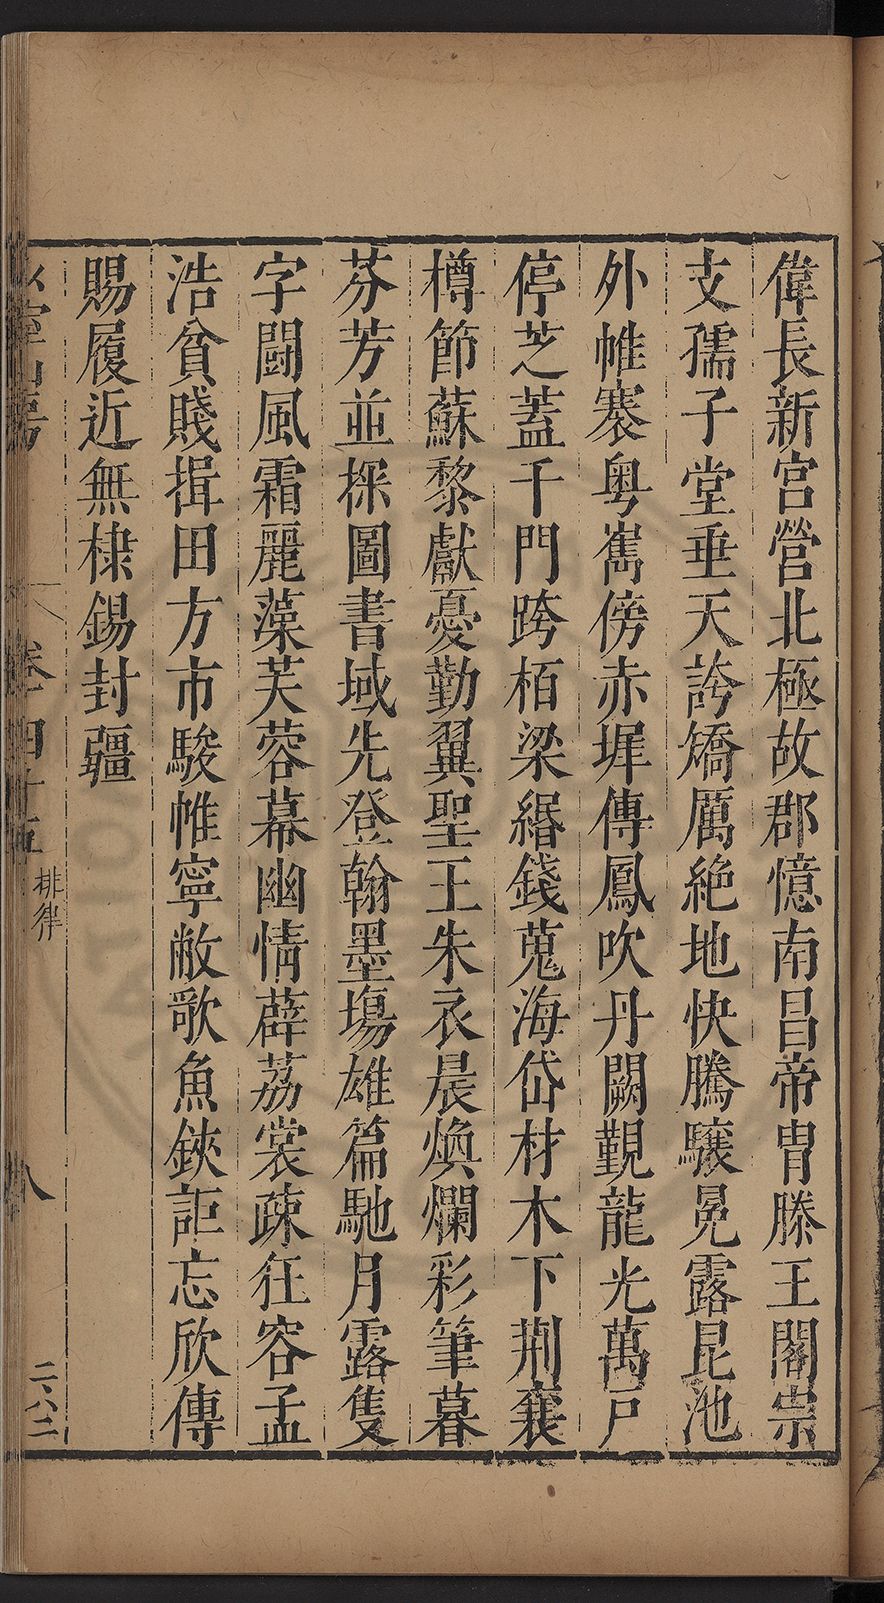 偉長新宮營北極故郡憶南昌帝胄滕王閣崇
支孺子堂垂天誇矯厲絶地快騰驤冕露昆池
外帷褰粤嶲傍赤墀傳鳳吹丹闕覲龍光萬戸
停芝蓋千門跨栢梁緡錢蒐海岱材木下荆襄
樽節蘇黎獻憂勤翼聖王朱衣晨煥爛彩筆暮
芬芳並探圖書域先登翰墨塲雄篇馳月露隻
字闘風霜麗藻芙蓉幕幽情薜荔裳疎狂容孟
浩貧賤揖田方市駿帷寧敝歌魚鋏詎忘欣傳
賜履近無棣錫封疆
少室山房
卷一四十五
排律
八
二八二